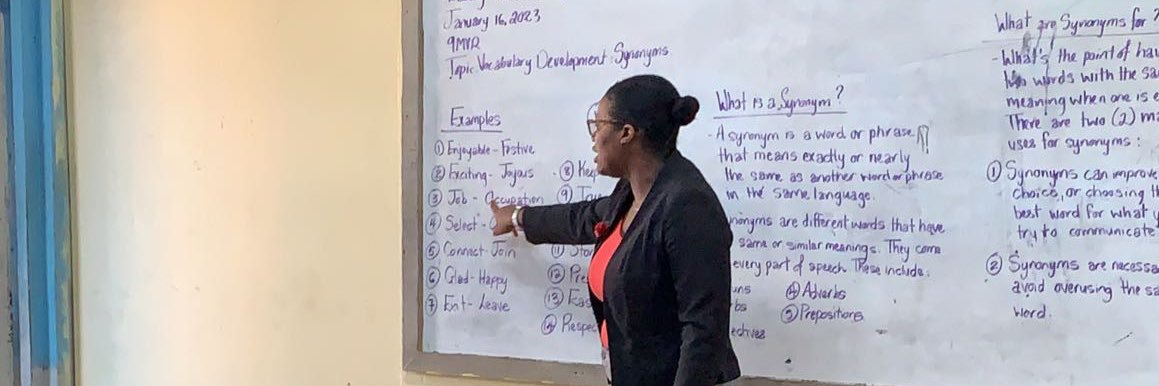 January 16, 2023
9MVR
Topic: Vocabulary Development: Synonyms
Examples
① Enjoyable - Festive
② Exciting - Joyous
③ Job - Occupation
④ Select -
⑤ Connect - Join
⑥ Glad - Happy
⑦ Exit - Leave
⑧ Keep
⑨
⑪
⑫
⑬
⑭
What is a Synonym?
- A synonym is a word or phrase
that means exactly or nearly
the same as another word or phrase
in the same language.
are different words that have
same or similar meanings. They come
every part of speech. These include:
④ Adverbs
⑤ Prepositions
What are Synonyms for
- What's the point of
two words with the
meaning when one is
There are two (2)
uses for synonyms:
① Synonyms can improve
choice, or choosing
best word for what
try to communicate
② Synonyms are
avoid overusing the
word.